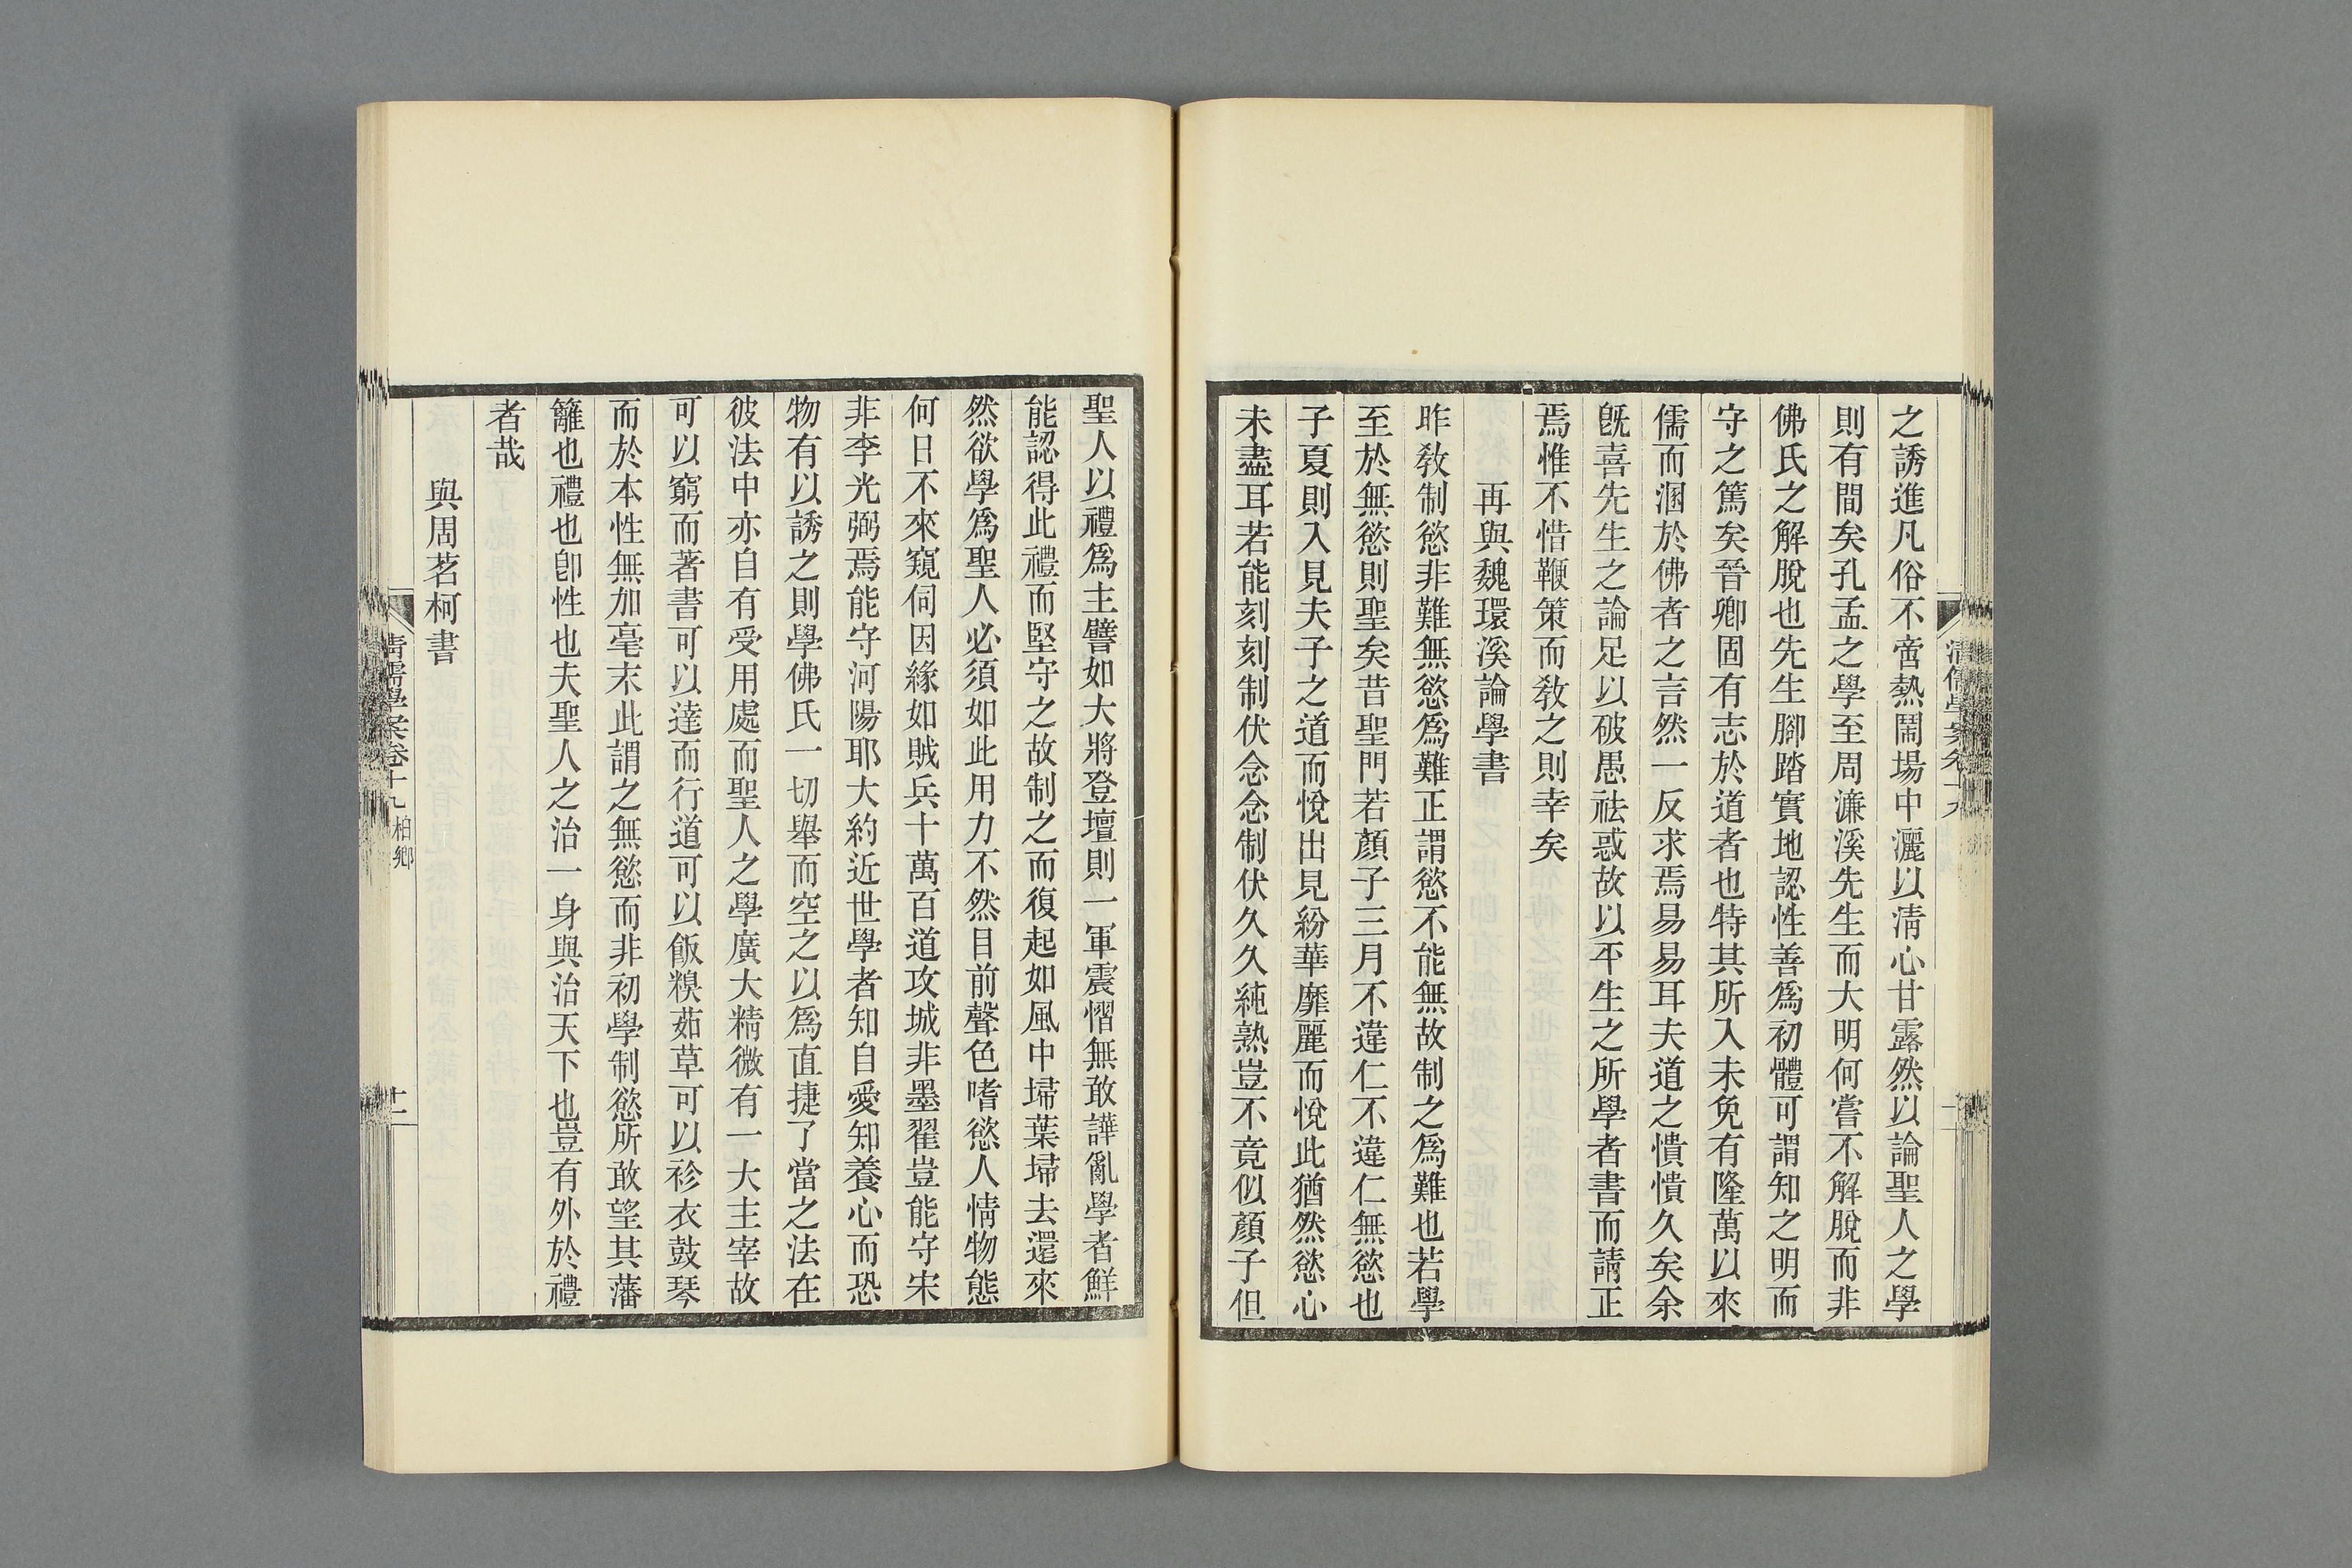 之誘進凡俗不啻熱鬧場中灑以淸心甘露然以論聖人之學
則有間矣孔孟之學至周濂溪先生而大明何嘗不解脫而非
佛氏之解脫也先生腳踏實地認性善爲初體可謂知之明而
守之篤矣晉卿固有志於道者也特其所入未免有隆萬以來
儒而溷於佛者之言然一反求焉易易耳夫道之憒憒久矣余
旣喜先生之論足以破愚祛惑故以平生之所學者書而請正
焉惟不惜鞭策而敎之則幸矣
再與魏環溪論學書
昨敎制慾非難無慾爲難正謂慾不能無故制之爲難也若學
至於無慾則聖矣昔聖門若顏子三月不違仁不違仁無慾也
子夏則入見夫子之道而悅出見紛華靡麗而悅此猶然慾心
未盡耳若能刻刻制伏念念制伏久久純熟豈不竟似顏子但
聖人以禮爲主譬如大將登壇則一軍震慴無敢譁亂學者鮮
能認得此禮而堅守之故制之而復起如風中埽葉埽去還來
然欲學爲聖人必須如此用力不然目前聲色嗜慾人情物態
何日不來窺伺因緣如賊兵十萬百道攻城非墨翟豈能守宋
非李光弼焉能守河陽耶大約近世學者知自愛知養心而恐
物有以誘之則學佛氏一切舉而空之以爲直捷了當之法在
彼法中亦自有受用處而聖人之學廣大精微有一大主宰故
可以窮而著書可以達而行道可以飯糗茹草可以袗衣鼓琴
而於本性無加毫末此謂之無慾而非初學制慾所敢望其藩
籬也禮也卽性也夫聖人之治一身與治天下也豈有外於禮
者哉
與周茗柯書
淸儒學案卷十九 柏鄉
十二